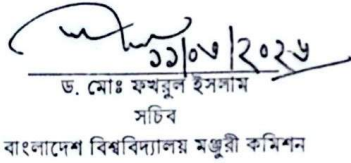 ১১/০৩/২০২৬
ড. মোঃ ফখরুল ইসলাম
সচিব
বাংলাদেশ বিশ্ববিদ্যালয় মঞ্জুরী কমিশন